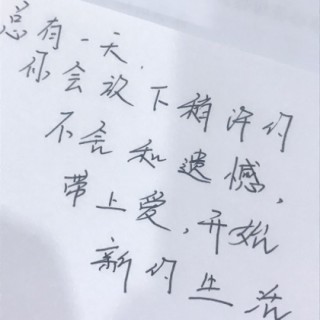 总有一天，
你会放下稍许的
不舍和遗憾，
带上爱，开始
新的生活